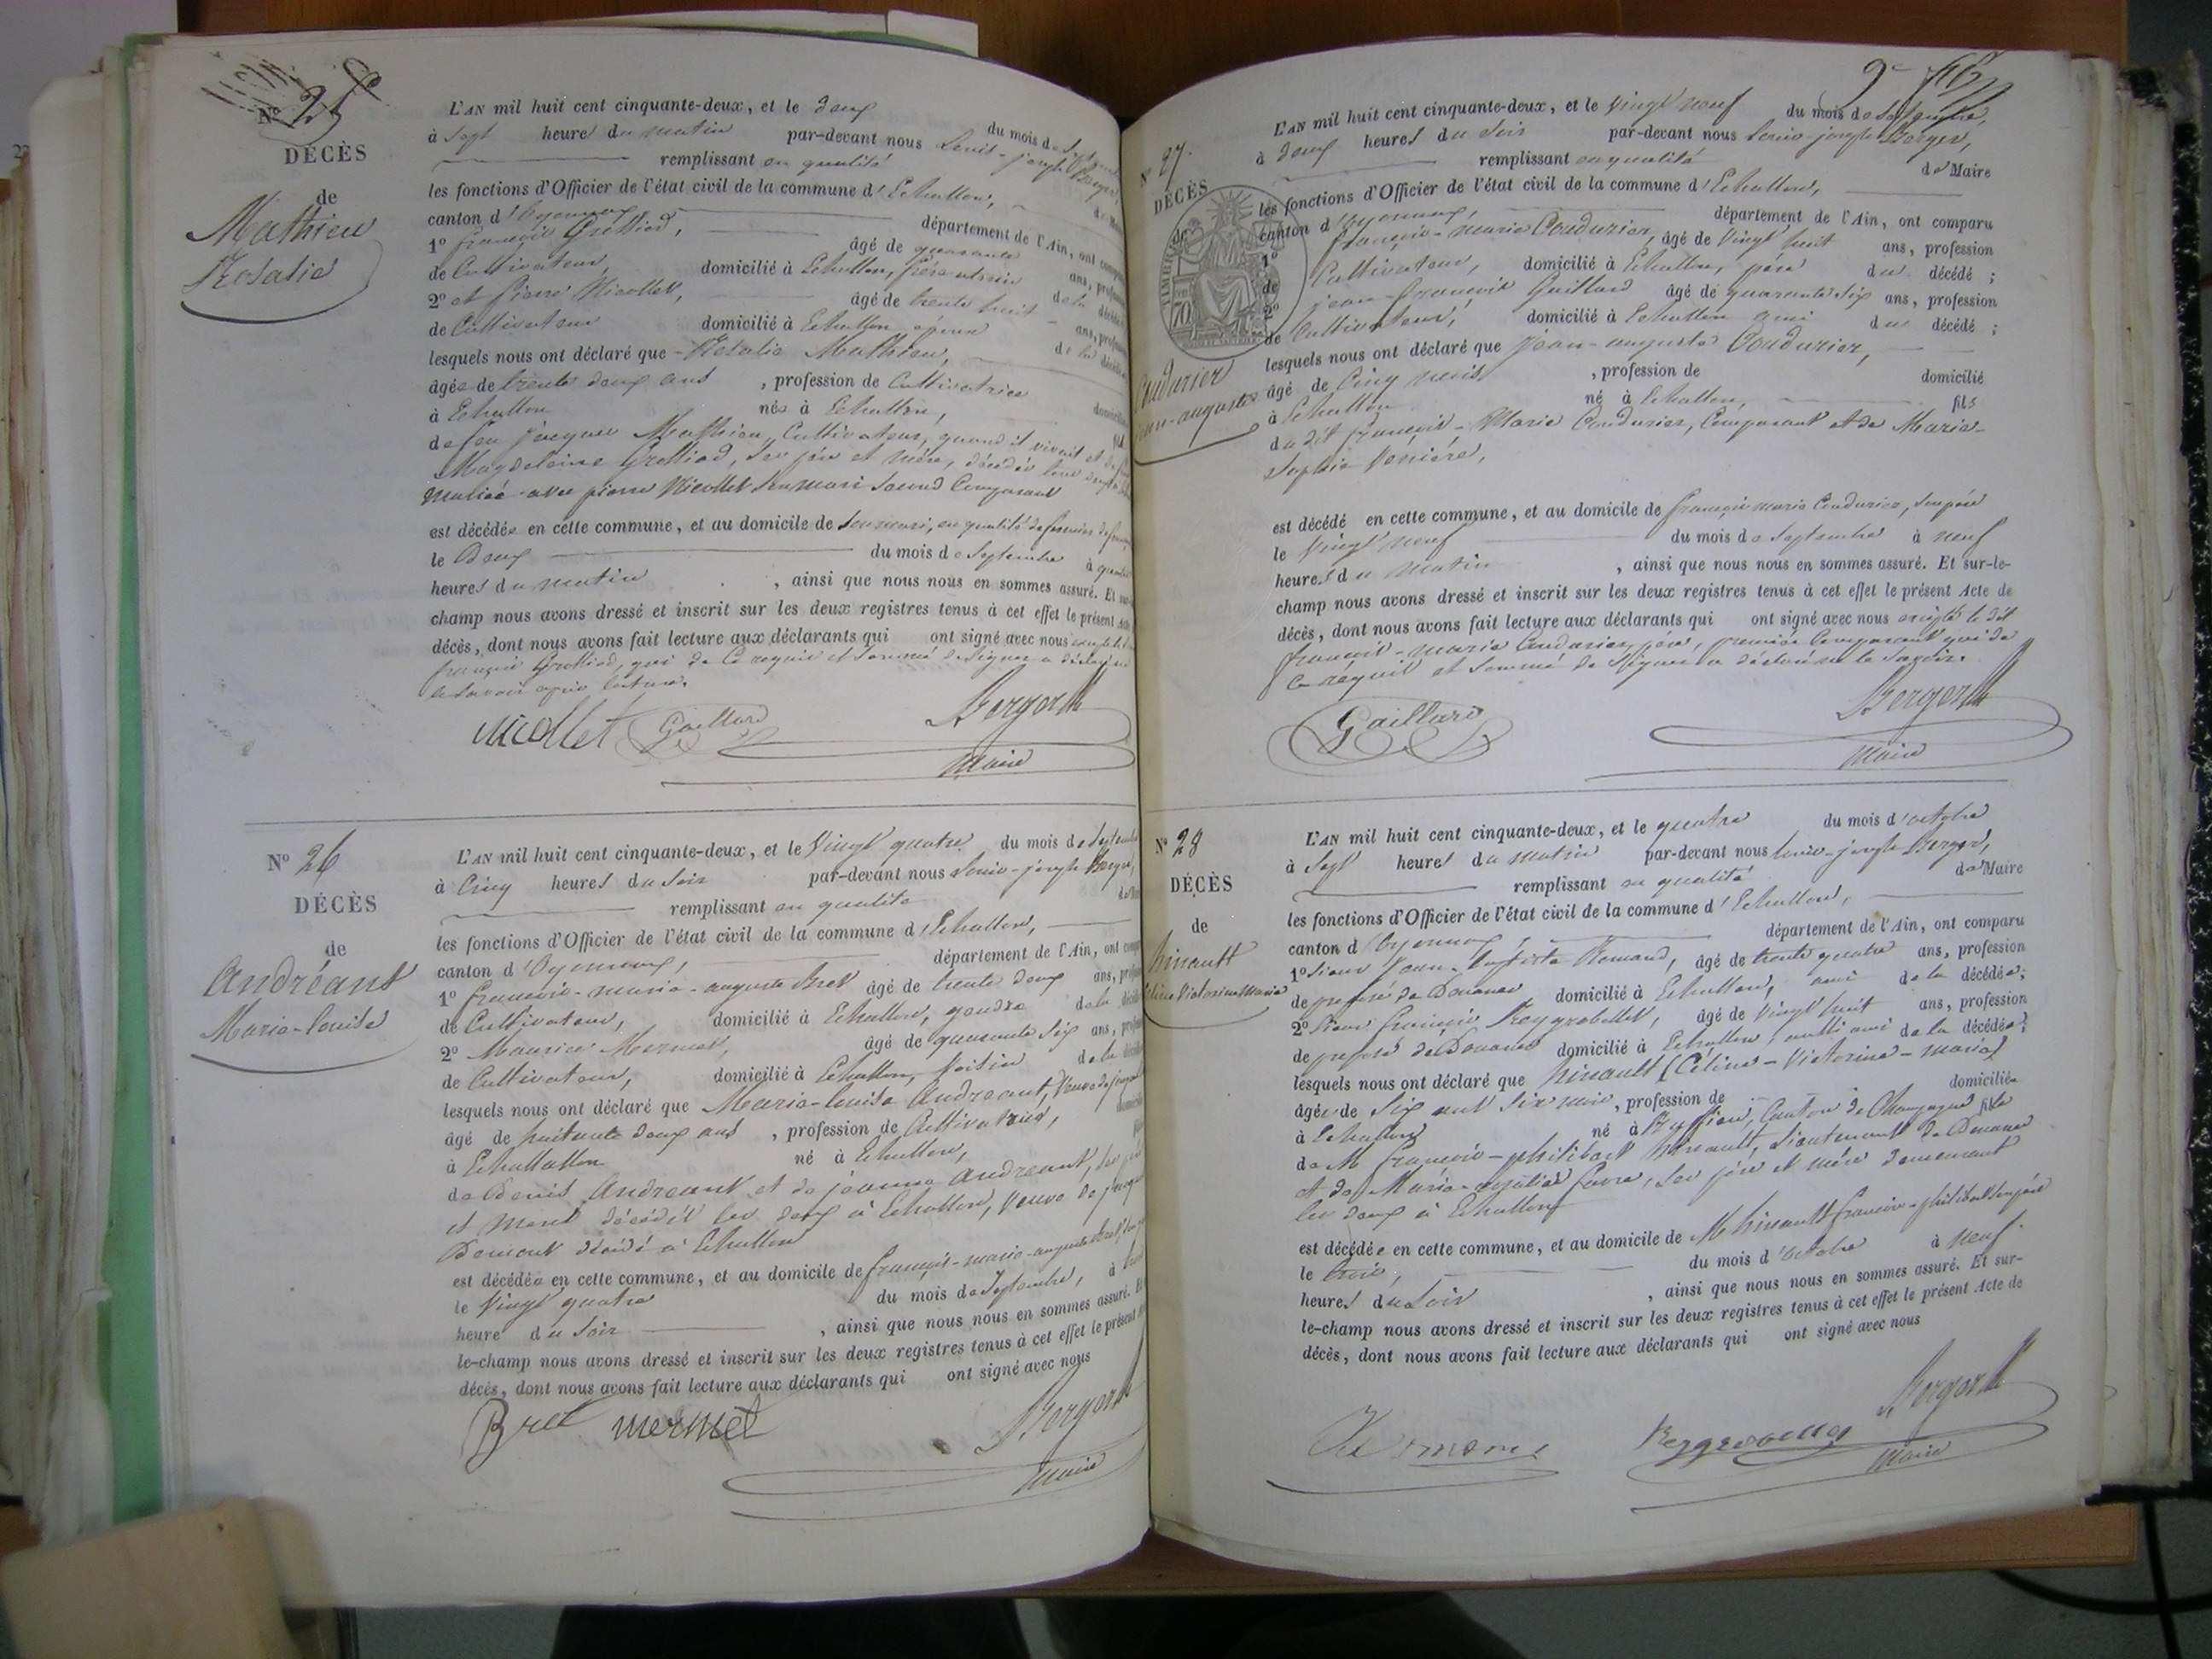 No 25
DÉCÈS
de
Mathieu
Rosalie
L'AN mil huit cent cinquante-deux, et le deux du mois de
à Sept heures du matin par-devant nous Louis-joseph Berger,
remplissant en qualité
les fonctions d'Officier de l'état civil de la commune d'Echallon,
canton d'Oyonnax, département de l'Ain, ont
1º françois Grelliod, âgé de quarante ans,
de Cultivateur, domicilié à Echallon, de la
2º et pierre Nicollet, âgé de trente huit ans,
de Cultivateur domicilié à Echallon époux de la
lesquels nous ont déclaré que Rosalie Mathieu,
âgée de trente deux ans, profession de Cultivatrice
à Echallon née à Echallon,
de feu jacques Mathieu, Cultivateur, quand il vivait et de
Magdeleine Grelliod, ses père et mère, décédés tous deux
mariée avec pierre Nicollet son mari second Comparant
est décédée en cette commune, et au domicile de son mari, en qualité de fermier de
le Deux du mois de Septembre à
heures du matin, ainsi que nous nous en sommes assuré. Et
champ nous avons dressé et inscrit sur les deux registres tenus à cet effet le présent Acte
décès, dont nous avons fait lecture aux déclarants qui ont signé avec nous
françois Grelliod, qui de Ce requis et sommé de signer a déclaré ne
le savoir après lecture.
Nicollet Gaillard Berger
Maire
No 26
DÉCÈS
de
Andréant
Marie-louise
L'AN mil huit cent cinquante-deux, et le Vingt quatre du mois de Septembre
à Cinq heures du Soir par-devant nous Louis-joseph Berger,
remplissant en qualité
les fonctions d'Officier de l'état civil de la commune d'Echallon,
canton d'Oyonnax, département de l'Ain, ont
1º françois-marie-auguste Bret âgé de trente deux ans,
de Cultivateur, domicilié à Echallon, gendre de la
2º Maurice Mermet, âgé de quarante Six ans,
de Cultivateur, domicilié à Echallon, Voisin de la
lesquels nous ont déclaré que Marie-louise Andreant, Veuve de
âgé de huitante deux ans, profession de Cultivatrice,
à Echallallon né à Echallon,
de Denis Andreant et de jeanne Andreant, ses
et mere décédés les deux à Echallon, Veuve de
décédé à Echallon
est décédée en cette commune, et au domicile de françois-marie-auguste Bret,
le Vingt quatre du mois de Septembre, à
heure du Soir, ainsi que nous nous en sommes assuré. Et
le-champ nous avons dressé et inscrit sur les deux registres tenus à cet effet le présent
décès, dont nous avons fait lecture aux déclarants qui ont signé avec nous
Bret mermet Berger
Maire
27.
DÉCÈS
de
Coudurier
jean-auguste
L'AN mil huit cent cinquante-deux, et le Vingt neuf du mois de Septembre,
à deux heures du Soir par-devant nous Louis-joseph Berger,
remplissant en qualité de Maire
les fonctions d'Officier de l'état civil de la commune d'Echallon,
canton d'Oyonnax, département de l'Ain, ont comparu
1º françois-marie Coudurier, âgé de Vingt huit ans, profession
de Cultivateur, domicilié à Echallon, père du décédé ;
2º jean-françois Gaillard âgé de quarante Six ans, profession
de Cultivateur, domicilié à Echallon ami du décédé ;
lesquels nous ont déclaré que jean-auguste Coudurier,
âgé de Cinq mois, profession de domicilié
à Echallon né à Echallon, fils
du dit françois-Marie Coudurier, Comparant et de Marie-
Sophie
est décédé en cette commune, et au domicile de françois marie Coudurier, son père
le Vingt neuf du mois de Septembre à neuf
heures du matin, ainsi que nous nous en sommes assuré. Et sur-le-
champ nous avons dressé et inscrit sur les deux registres tenus à cet effet le présent Acte de
décès, dont nous avons fait lecture aux déclarants qui ont signé avec nous excepté le dit
françois-marie Coudurier, père, premier Comparant qui de
ce requis et sommé de signer a déclaré ne le savoir.
Gaillard Berger
Maire
Nº 28
DÉCÈS
de
hinault
Céline Victorine Maria
L'AN mil huit cent cinquante-deux, et le quatre du mois d'octobre
à Sept heures du matin par-devant nous Louis-joseph Berger,
remplissant en qualité de Maire
les fonctions d'Officier de l'état civil de la commune d'Echallon,
canton d'Oyonnax, département de l'Ain, ont comparu
1º Sieur Jean-baptiste âgé de trente quatre ans, profession
de préposé de Douanes domicilié à Echallon, ami de la décédée;
2º Sieur françois Reygrobellet, âgé de Vingt huit ans, profession
de préposé de Douanes domicilié à Echallon, aussi ami de la décédée;
lesquels nous ont déclaré que hinault (Céline-Victorine-maria)
âgée de Six ans Six mois, profession de domiciliée
à Echallon né à Ruffieu, Canton de Champagne fille
de M françois-philibert hinault, Lieutenant de Douanes
et de Maria-rosalie favre, ses père et mère demeurant
les deux à Echallon
est décédée en cette commune, et au domicile de M hinault françois-philibert son père
le trois, du mois d'Octobre à neuf
heures du Soir, ainsi que nous nous en sommes assuré. Et sur-
le-champ nous avons dressé et inscrit sur les deux registres tenus à cet effet le présent Acte de
décès, dont nous avons fait lecture aux déclarants qui ont signé avec nous
Reygrobellet Berger
Maire